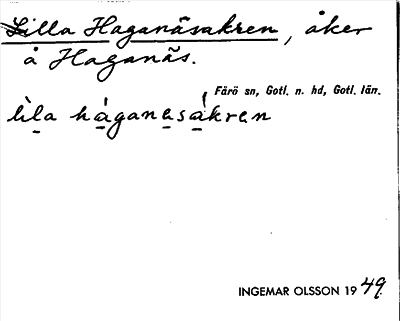 Lilla Haganäsakren, åker
å Haganäs.
Fårö sn, Gotl. n. hd, Gotl. län.
lila håganesåkren
INGEMAR OLSSON 1949